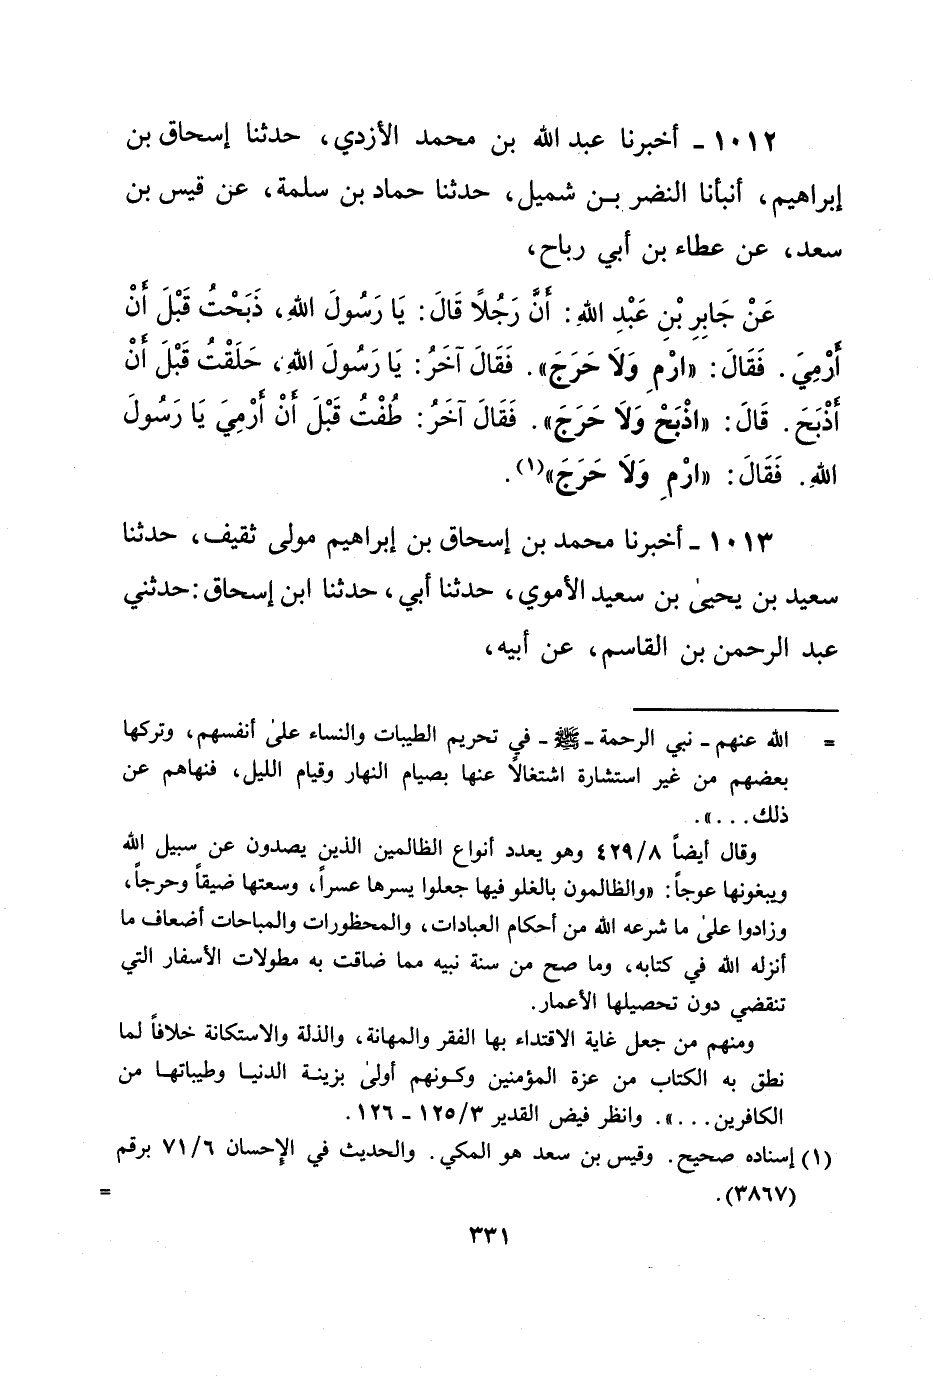 ١٠١٢ ـ أخبرنا عبد الله بن محمد الأزدي، حدثنا إسحاق بن
إبراهيم، أنبأنا النضر بن شميل، حدثنا حماد بن سلمة، عن قيس بن
سعد، عن عطاء بن أبي رباح،
عَنْ جَابِرِ بْنِ عَبْدِ اللهِ: أَنَّ رَجُلاً قَالَ: يَا رَسُولَ اللهِ، ذَبَحْتُ قَبْلَ أَنْ
أَرْمِيَ. فَقَالَ: «ارْمِ وَلَا حَرَجَ». فَقَالَ آخَرُ: يَا رَسُولَ اللهِ، حَلَقْتُ قَبْلَ أَنْ
أَذْبَحَ. قَالَ: «اذْبَحْ وَلَا حَرَجَ». فَقَالَ آخَرُ: طُفْتُ قَبْلَ أَنْ أَرْمِيَ يَا رَسُولَ
اللهِ. فَقَالَ: «ارْمِ وَلَا حَرَجَ»(١).
١٠١٣ ـ أخبرنا محمد بن إسحاق بن إبراهيم مولى ثقيف، حدثنا
سعيد بن يحيىٰ بن سعيد الأموي، حدثنا أبي، حدثنا ابن إسحاق: حدثني
عبد الرحمن بن القاسم، عن أبيه،
= الله عنهم ـ نبي الرحمة ـ ﷺ ـ في تحريم الطيبات والنساء علىٰ أنفسهم، وتركها
بعضهم من غير استشارة اشتغالاً عنها بصيام النهار وقيام الليل، فنهاهم عن
ذلك...».
وقال أيضاً ٤٢٩/٨ وهو يعدد أنواع الظالمين الذين يصدون عن سبيل الله
ويبغونها عوجاً: «والظالمون بالغلو فيها جعلوا يسرها عسراً، وسعتها ضيقاً وحرجاً،
وزادوا علىٰ ما شرعه الله من أحكام العبادات، والمحظورات والمباحات أضعاف ما
أنزله الله في كتابه، وما صح من سنة نبيه مما ضاقت به مطولات الأسفار التي
تنقضي دون تحصيلها الأعمار.
ومنهم من جعل غاية الاقتداء بها الفقر والمهانة، والذلة والاستكانة خلافاً لما
نطق به الكتاب من عزة المؤمنين وكونهم أولىٰ بزينة الدنيا وطيباتها من
الكافرين...». وانظر فيض القدير ١٢٥/٣ ـ ١٢٦.
(١) إسناده صحيح. وقيس بن سعد هو المكي. والحديث في الإحسان ٧١/٦ برقم
(٣٨٦٧). =
٣٣١